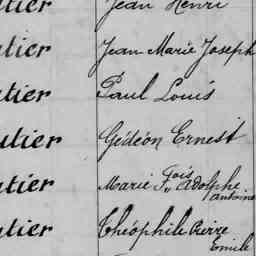 tier Jean Henri
utier Jean Marie Joseph
utier Paul Louis
utier Gédéon Ernest
utier Marie Fois Adolphe
Antoine
utier Théophile Pierre
Emile